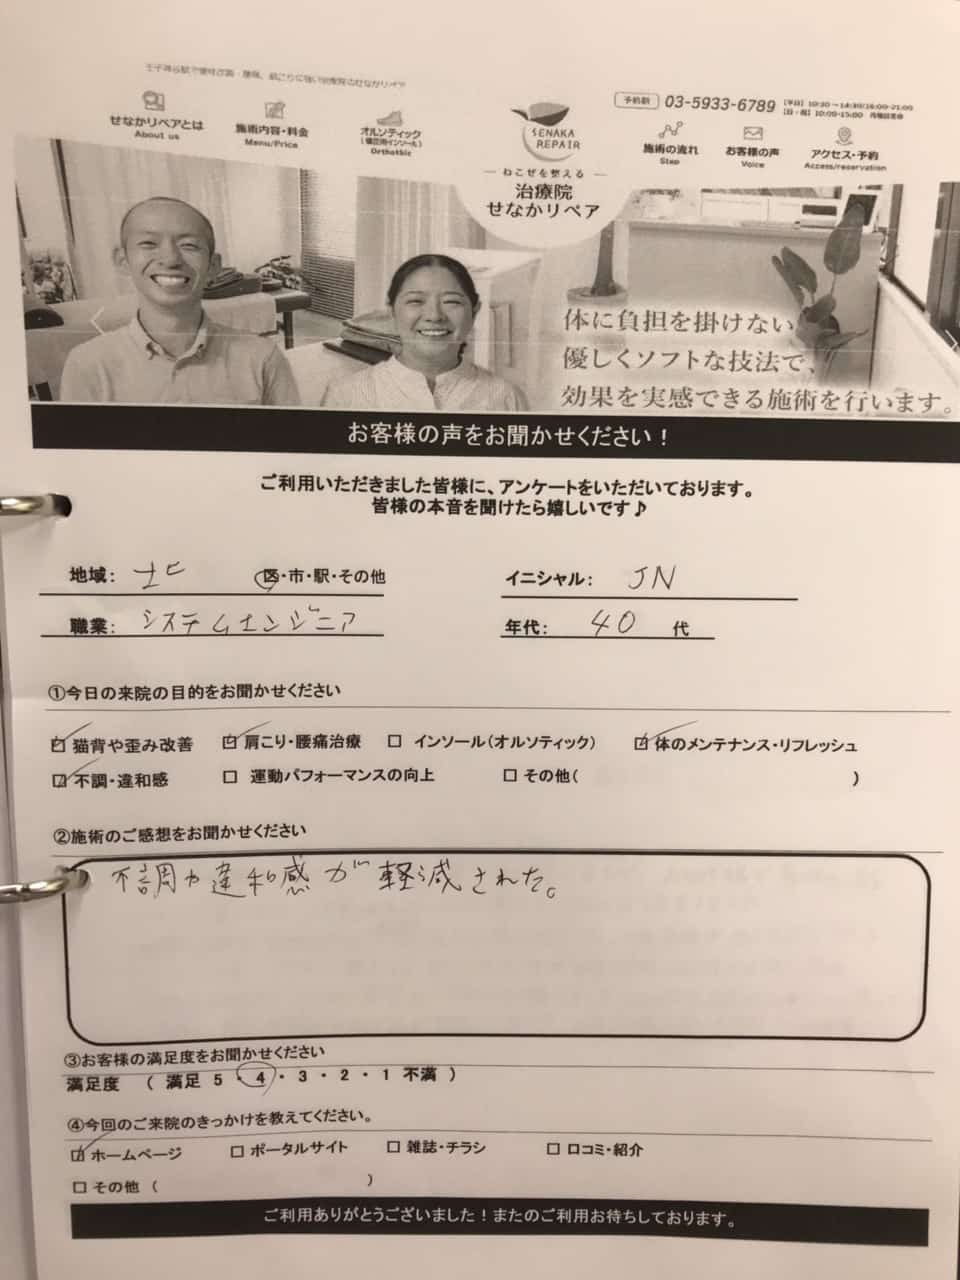 王子神谷駅で猫背改善・腰痛、肩こりに強い治療院のせなかリペア
せなかリペアとは
About us
施術内容・料金
Menu/Price
オルソティック
(矯正用インソール)
Orthothic
SENAKA
REPAIR
ねこぜを整える
治療院
せなかリペア
予約制 03-5933-6789
【平日】10:30~14:30/16:00-21:00
【日・祝】10:00-15:00
施術の流れ
Step
お客様の声
Voice
アクセス・予約
Access/reservation
体に負担を掛けない、
優しくソフトな技法で、
効果を実感できる施術を行います。
お客様の声をお聞かせください!
ご利用いただきました皆様に、アンケートをいただいております。
皆様の本音を聞けたら嬉しいです♪
地域: 北 区・市・駅・その他 イニシャル: JN
職業: システムエンジニア 年代: 40 代
①今日の来院の目的をお聞かせください
☑ 猫背や歪み改善 ☑ 肩こり・腰痛治療 □ インソール(オルソティック) ☑ 体のメンテナンス・リフレッシュ
☑ 不調・違和感 □ 運動パフォーマンスの向上 □ その他( )
②施術のご感想をお聞かせください
不調や違和感が軽減された。
③お客様の満足度をお聞かせください
満足度 ( 満足 5 ・ 4 ・ 3 ・ 2 ・ 1 不満 )
④今回のご来院のきっかけを教えてください。
☑ ホームページ □ ポータルサイト □ 雑誌・チラシ □ 口コミ・紹介
□ その他 ( )
ご利用ありがとうございました!またのご利用お待ちしております。